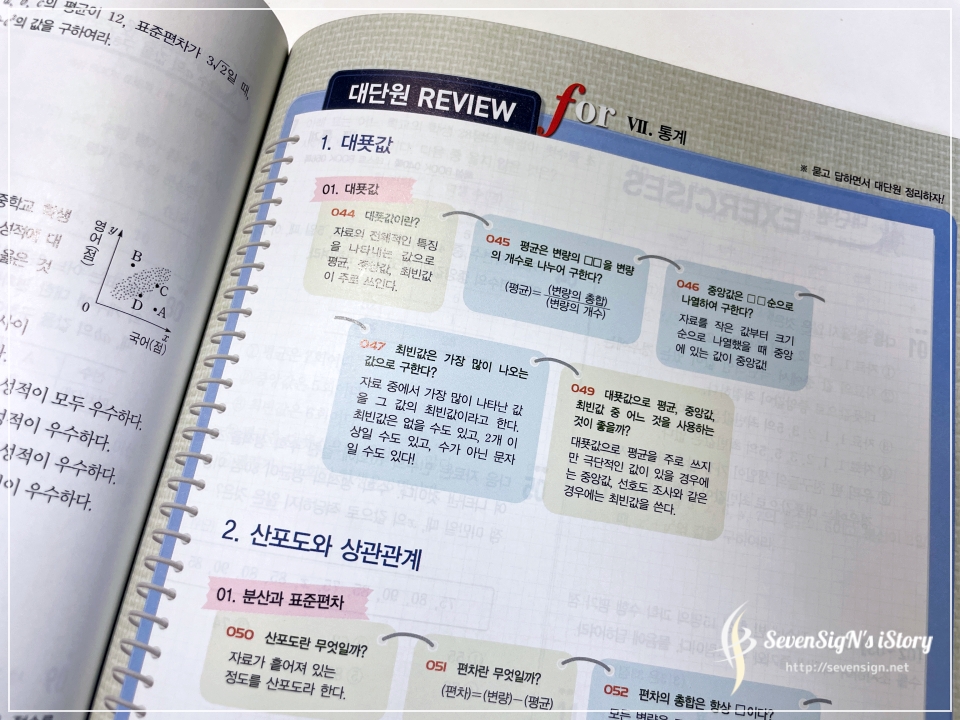 의 평균이 12, 표준편차가 3√2일 때,
의 값을 구하여라.
중학교 학생
성적에 대
옳은 것
영어(점)
y
B
C
D
A
0
x
국어(점)
성적이 모두 우수하다.
성적이 우수하다.
성적이 우수하다.
이 우수하다.
대단원 REVIEW for Ⅶ. 통계
※ 묻고 답하면서 대단원 정리하자!
1. 대푯값
01. 대푯값
044 대푯값이란?
자료의 전체적인 특징
을 나타내는 값으로
평균, 중앙값, 최빈값
이 주로 쓰인다.
045 평균은 변량의 □□을 변량
의 개수로 나누어 구한다?
(평균)=(변량의 총합)/(변량의 개수)
046 중앙값은 □□순으로
나열하여 구한다?
자료를 작은 값부터 크기
순으로 나열했을 때 중앙
에 있는 값이 중앙값!
047 최빈값은 가장 많이 나오는
값으로 구한다?
자료 중에서 가장 많이 나타난 값
을 그 값의 최빈값이라고 한다.
최빈값은 없을 수도 있고, 2개 이
상일 수도 있고, 수가 아닌 문자
일 수도 있다!
049 대푯값으로 평균, 중앙값,
최빈값 중 어느 것을 사용하는
것이 좋을까?
대푯값으로 평균을 주로 쓰지
만 극단적인 값이 있을 경우에
는 중앙값, 선호도 조사와 같은
경우에는 최빈값을 쓴다.
2. 산포도와 상관관계
01. 분산과 표준편차
050 산포도란 무엇일까?
자료가 흩어져 있는
정도를 산포도라 한다.
051 편차란 무엇일까?
(편차)=(변량)-(평균)
052 편차의 총합은 항상 □이다?
모든 변량은
SevenSigN's iStory
http://sevensign.net